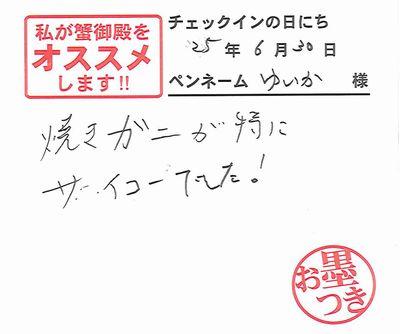 私が蟹御殿を
オススメ
します!!
チェックインの日にち
25年6月30日
ペンネーム ゆいか 様
焼きガニが特に
サイコーでした!
お墨つき